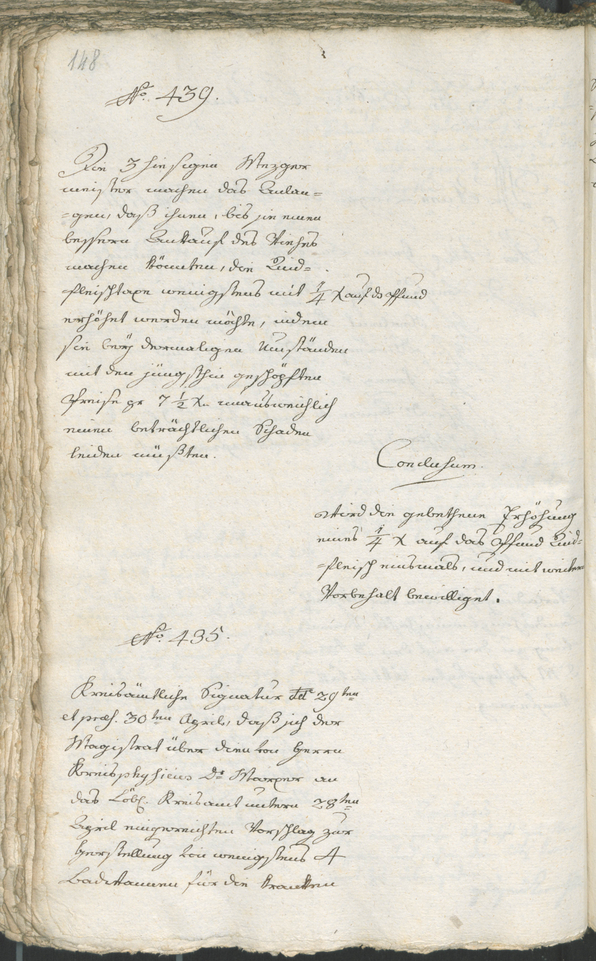 148
No. 439.
Die 3 hiesigen Mezger
meister machen das Anlan=
=gen, daß ihnen, bis sie einen
bessern Ankauf des Viehes
machen könnten, die Rind=
=fleischtaxe wenigstens mit 1/4 x auf das Pfund
erhöhet werden möchte, indem
sie beÿ dermaligen Umständen
mit den jüngsthin geschöpften
Preise pr 7 1/2 x unausweichlich
einen beträchtlichen Schaden
leiden müßten.
Conclusum.
Wird die gebethene Erhöhung
eines 1/4 x auf das Pfund Rind=
=fleisch einsmals, und mit weitern
Vorbehalt bewilliget.
No. 435.
Kreisämtliche Signatur dd 29ten
et præs. 30ten April, daß sich der
Magistrat über den von Herrn
Kreisphysicus Dr
das Löbl. Kreisamt untern 28ten
April eingereichten Vorschlag zur
Herstellung von wenigstens 4
Badwannen für die Kranken